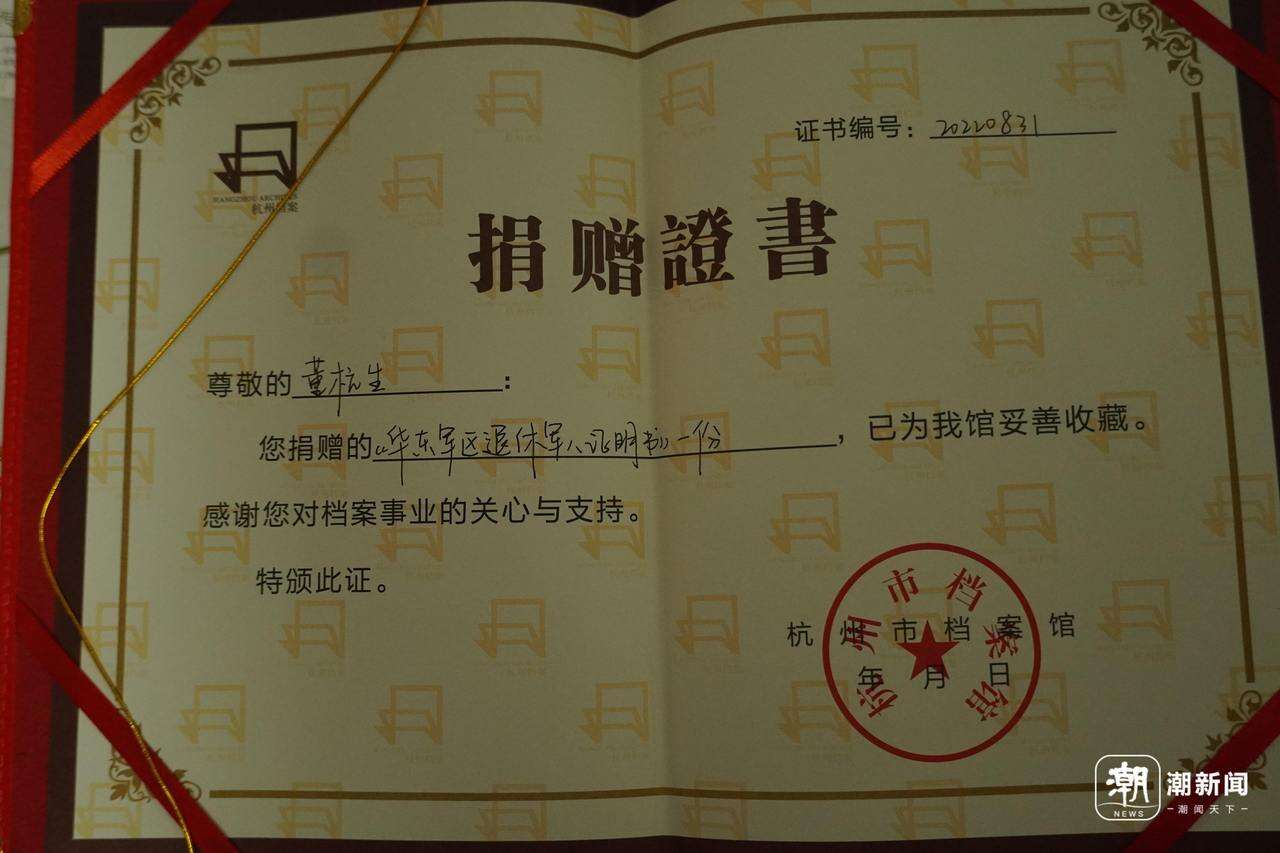 证书编号：20220831
HANGZHOU ARCHIVES
杭州档案
捐赠證書
尊敬的董杭生：
您捐赠的《华东军区退休军人证明书》一份，已为我馆妥善收藏。
感谢您对档案事业的关心与支持。
特颁此证。
杭州市档案馆
年 月 日
杭州市档案馆
潮 NEWS
潮新闻
潮闻天下